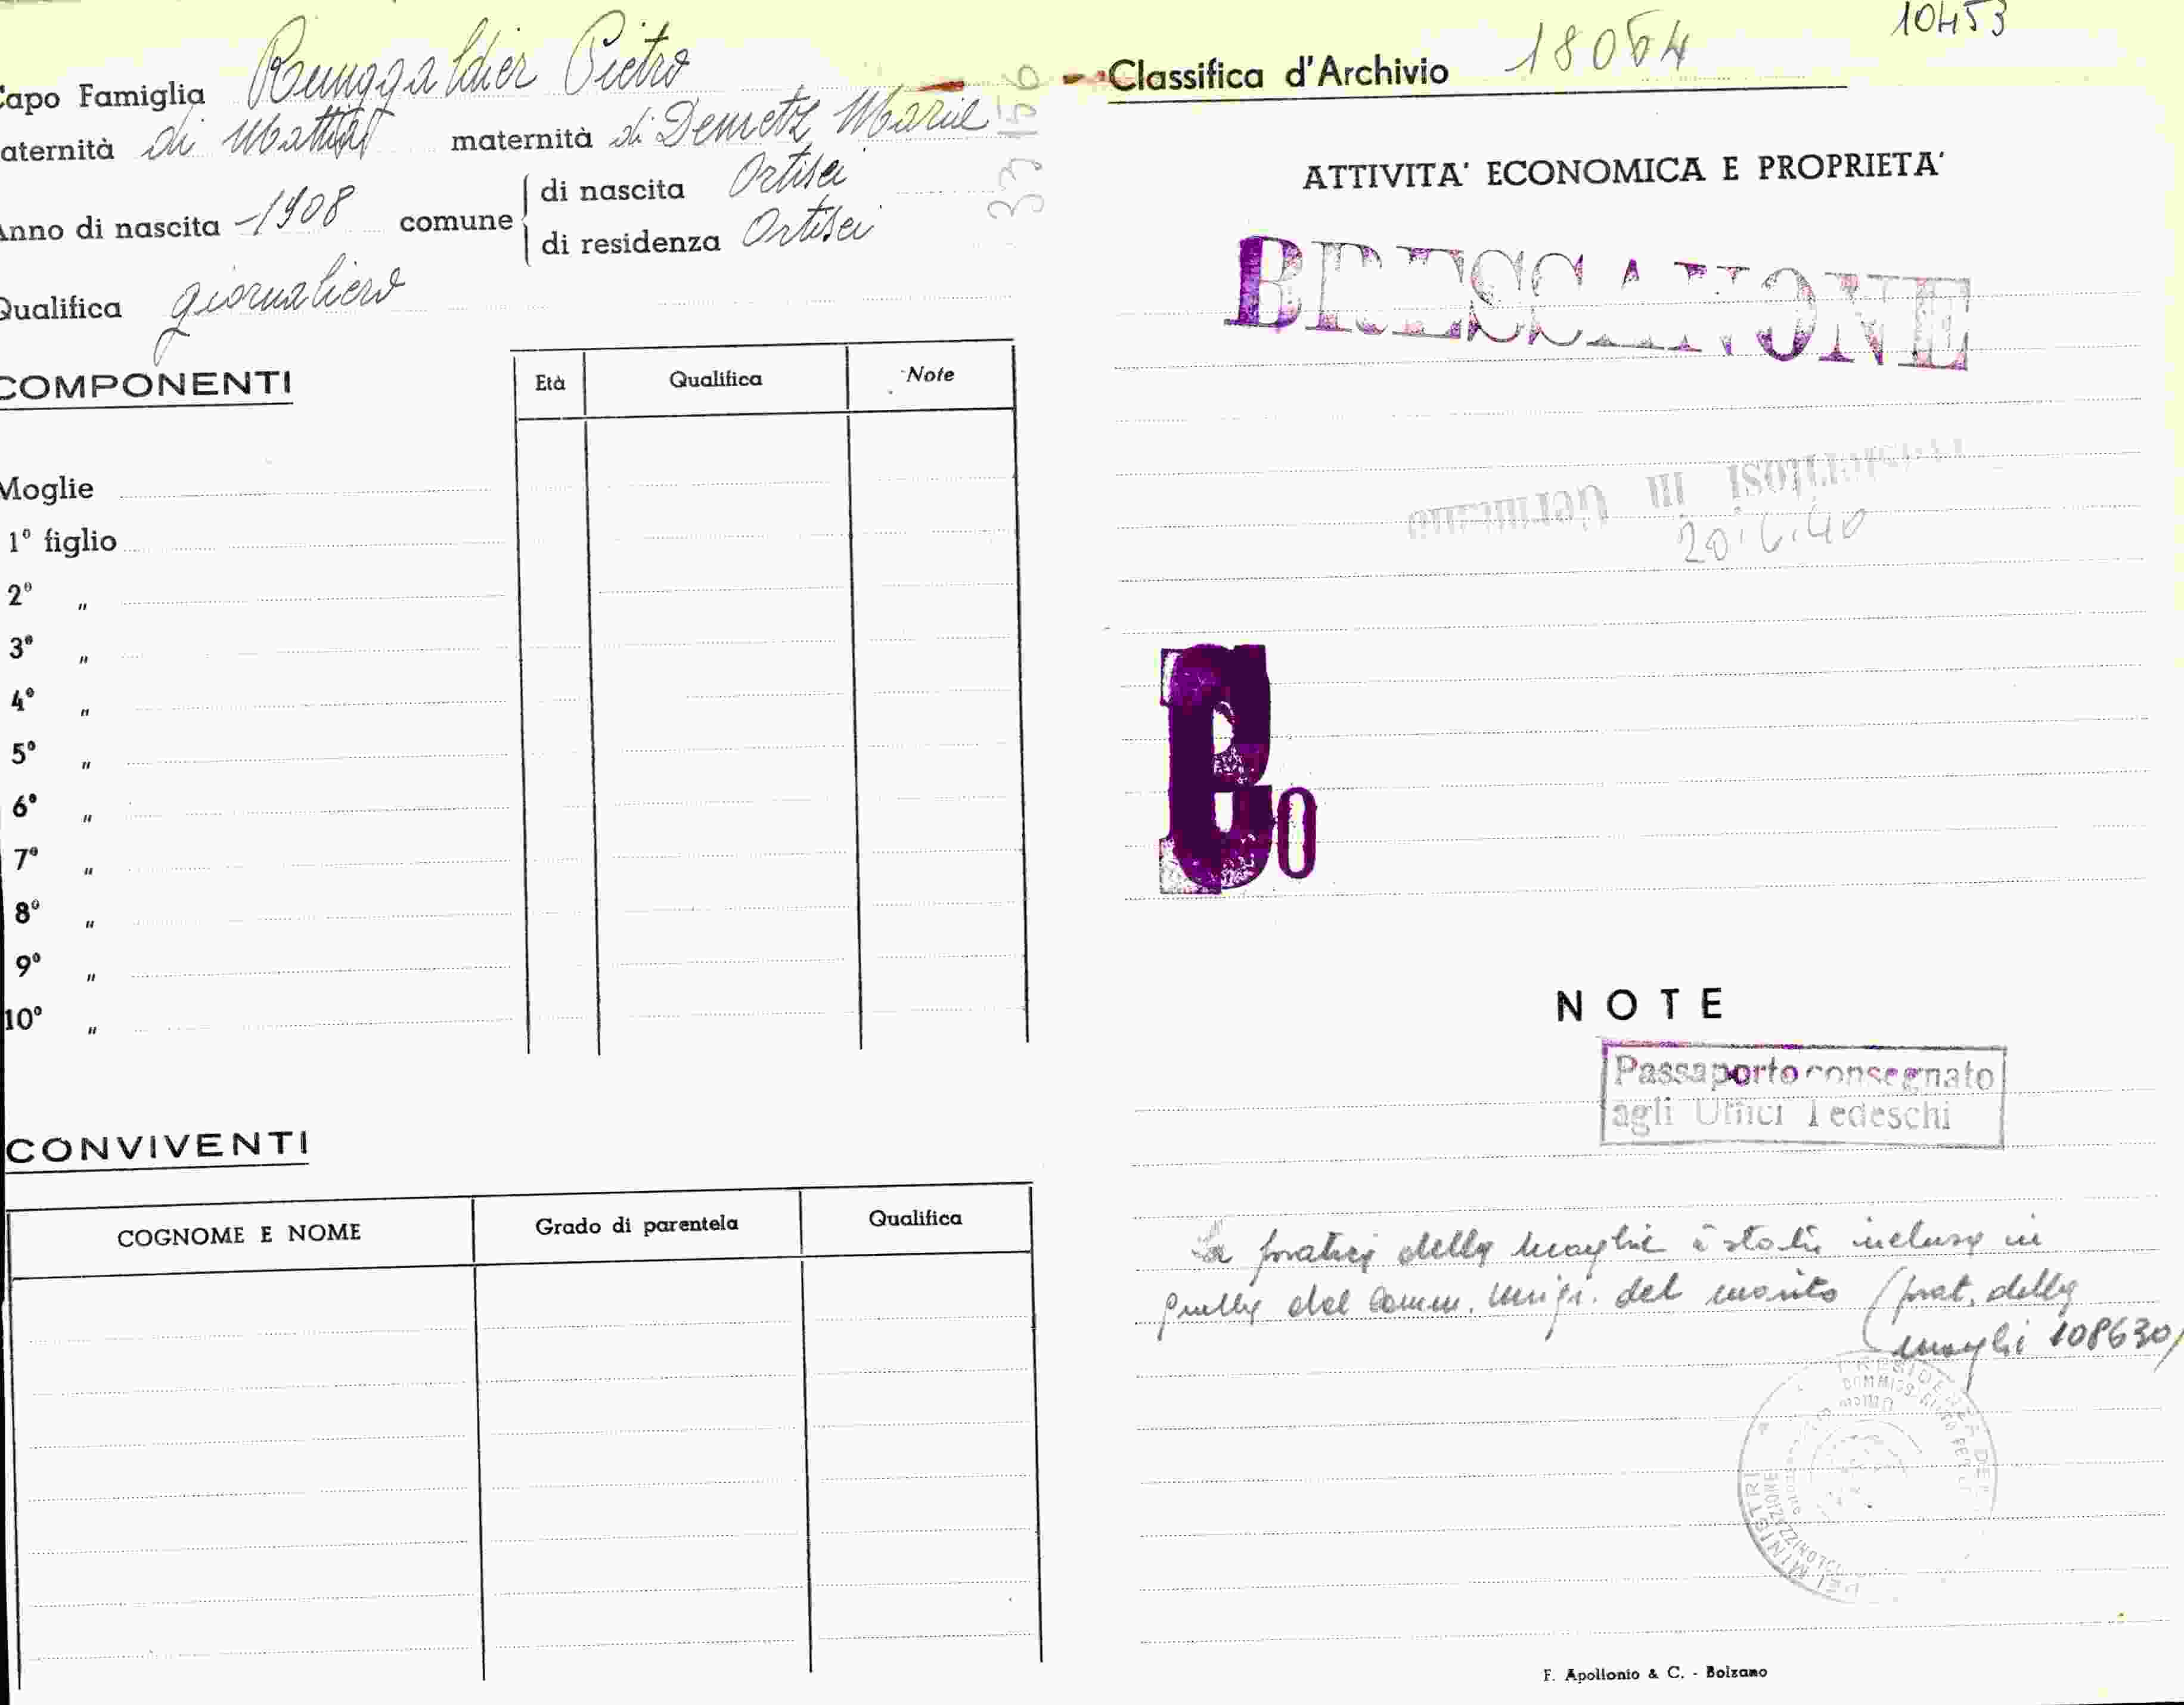 10453
Capo Famiglia Runggaldier Pietro
Classifica d'Archivio 18064
aternità di Mattia maternità di Demetz Marie
33156
Anno di nascita 1908 comune di nascita Ortisei
di residenza Ortisei
Qualifica giornaliero
COMPONENTI
Età Qualifica Note
Moglie
1º figlio
2º "
3º "
4º "
5º "
6º "
7º "
8º "
9º "
10º "
CONVIVENTI
COGNOME E NOME Grado di parentela Qualifica
ATTIVITA' ECONOMICA E PROPRIETA'
BRESSANONE
in Germania
20.6.40
NOTE
Passaporto consegnato
agli Uffici Tedeschi
La pratica della moglie è stata inclusa in
quella del comm. del marito (prat. della
moglie 108630)
PRESIDENZA DEL
DEI MINISTRI
F. Apollonio & C. - Bolzano